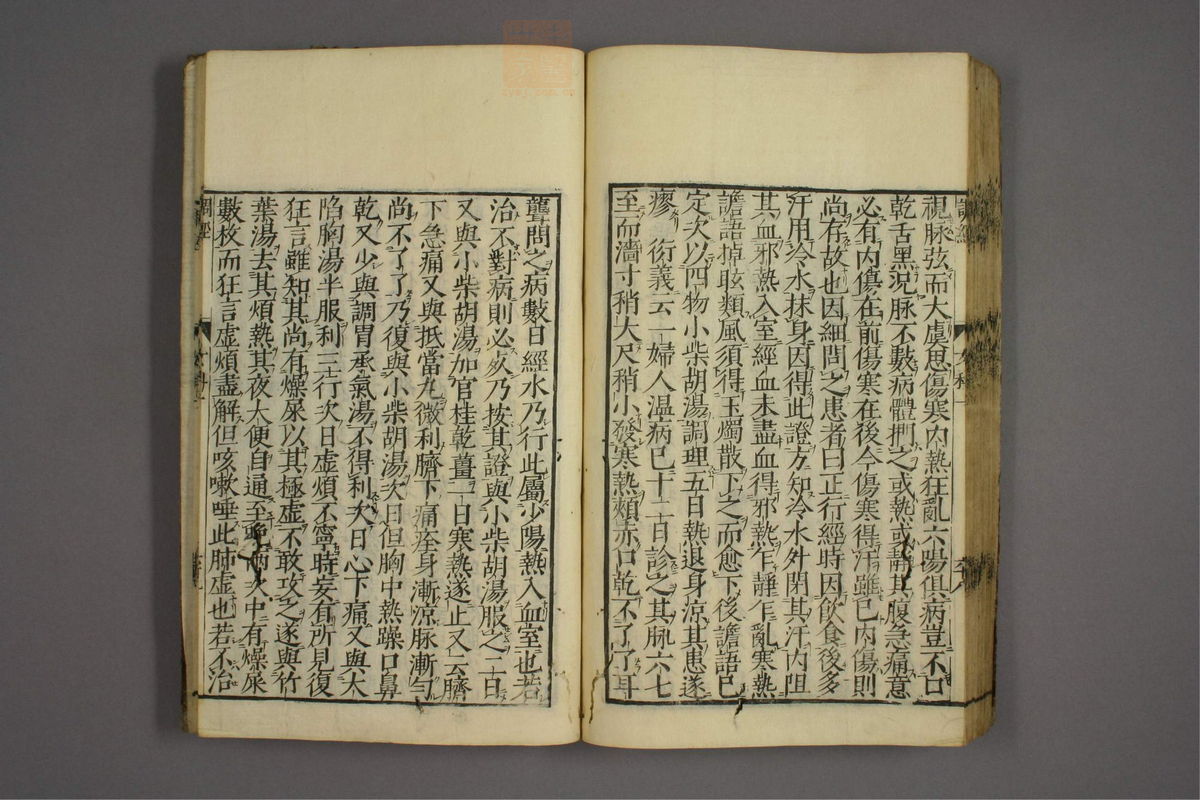 視脉弦而大虞思傷寒内熱狂亂六陽俱病豈不口
乾舌黒況脉不數病體捫之或熱或靜其腹急痛意
必有内傷在前傷寒在後今傷寒得汗雖已内傷則
尚存故也因細問之患者曰正行經時因飲食後多
汗用冷水抹身因得此證方知冷水外閉其汗内阻
其血邪熱入室經血未盡血得邪熱乍靜乍亂寒熱
譫語掉眩類風須得玉燭散下之而愈下後譫語已
定次以四物小柴胡湯調理五日熱退身涼其患遂
瘳　衍義云一婦人温病已十二日診之其脉六七
至而濇寸稍大尺稍小發寒熱頰赤口乾不了了耳
聾問之病數日經水乃行此屬少陽熱入血室也若
治不對病則必死乃按其證與小柴胡湯服之二日
又與小柴胡湯加官桂乾薑一日寒熱遂止又云臍
下急痛又與抵當丸微利臍下痛痊身漸涼脉漸勻
尚不了了乃復與小柴胡湯次日但胸中熱躁口鼻
乾又少與調胃承氣湯不得利次日心下痛又與大
陷胸湯半服利三行次日虚煩不寧時妄有所見復
狂言雖知其尚有燥屎以其極虚不敢攻之遂與竹
葉湯去其煩熱其夜大便自通至曉兩次中有燥屎
數枚而狂言虚煩盡解但咳嗽唾此肺虚也若不治
調經